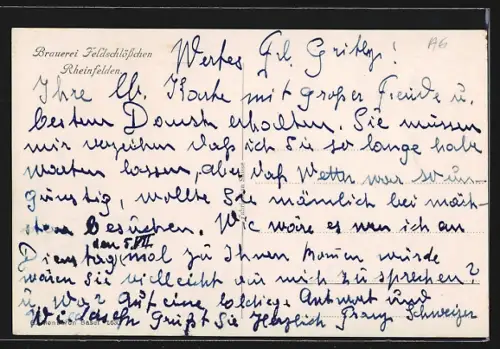 Brauerei Feldschlößchen
Rheinfelden
AG
Wertes Frl. Gritly!
Ihre lb. Karte mit großer Freude u.
bestem Dank erhalten. Sie müssen
mir verzeihen daß ich Sie so lange habe
warten lassen, aber das Wetter war so un-
günstig, wollte Sie nämlich bei näch-
stem besuchen. Wie wäre es wen ich an
Dienstag den 5.VII. mal zu Ihnen kommen würde
wären Sie vielleicht mich zu sprechen?
u. war auf eine baldige Antwort und
Wiedersehn Grüßt Sie Herzlich Franz Schweizer
Basel